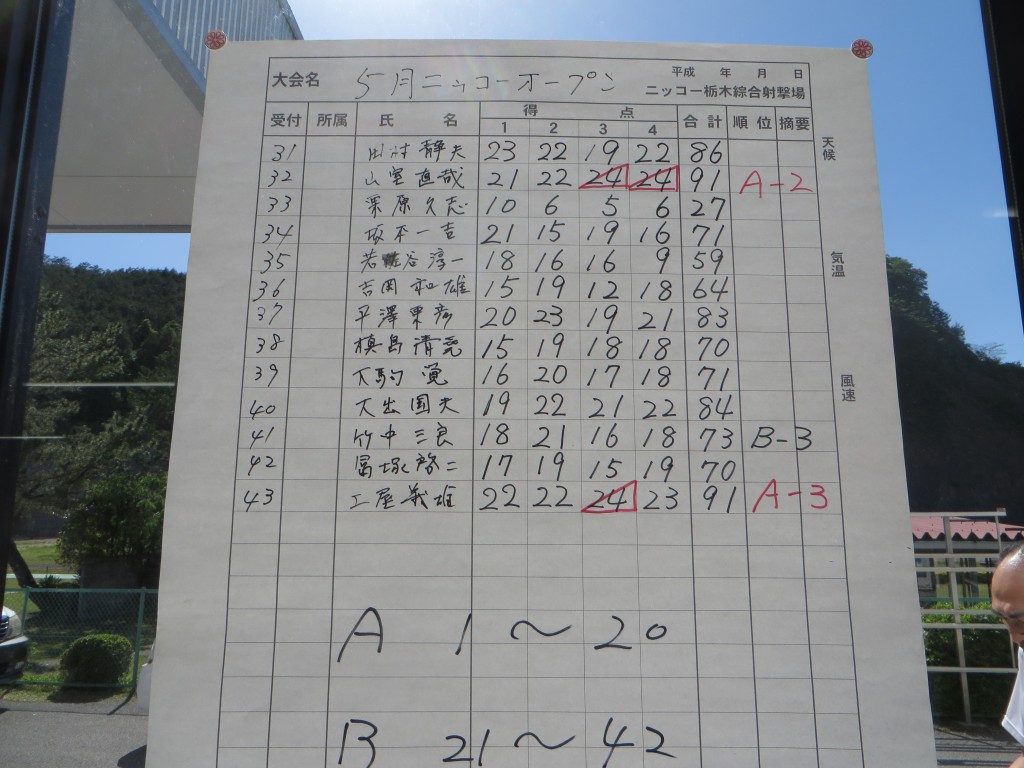 大会名 5月ニッコーオープン 平成 年 月 日
ニッコー栃木綜合射撃場
受付 所属 氏 名 得 点 合計 順位 摘要
1 2 3 4
天候
31 田村靜夫 23 22 19 22 86
32 山室直哉 21 22 24 24 91 A-2
33 栗原久志 10 6 5 6 27
34 坂本一吉 21 15 19 16 71
35 若 谷淳一 18 16 16 9 59
気温
36 吉岡和雄 15 19 12 18 64
37 平澤東彦 20 23 19 21 83
38 槙島清 15 19 18 18 70
39 駒覚 16 20 17 18 71
風速
40 大出国夫 19 22 21 22 84
41 竹中三良 18 21 16 18 73 B-3
42 冨塚啓二 17 19 15 19 70
43 土屋義雄 22 22 24 23 91 A-3
A 1〜20
B 21〜42